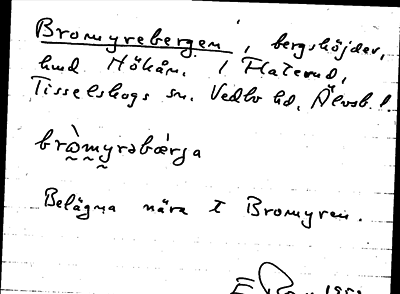 Bromyrebergen, bergshöjder,
hmd Hökån. i Flaterud,
Tisselskogs sn. Vedbo hd. Älvsb. l.
bròmyrəbœrga
Belägna nära t Bromyren.